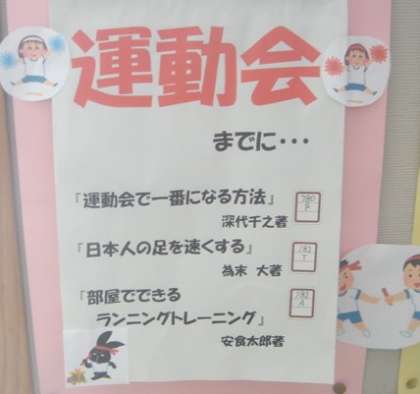 運動会
までに・・・
『運動会で一番になる方法』
深代千之著
780
『日本人の足を速くする』
為末 大著
782
T
『部屋でできる
ランニングトレーニング』
782
A
安食太郎著